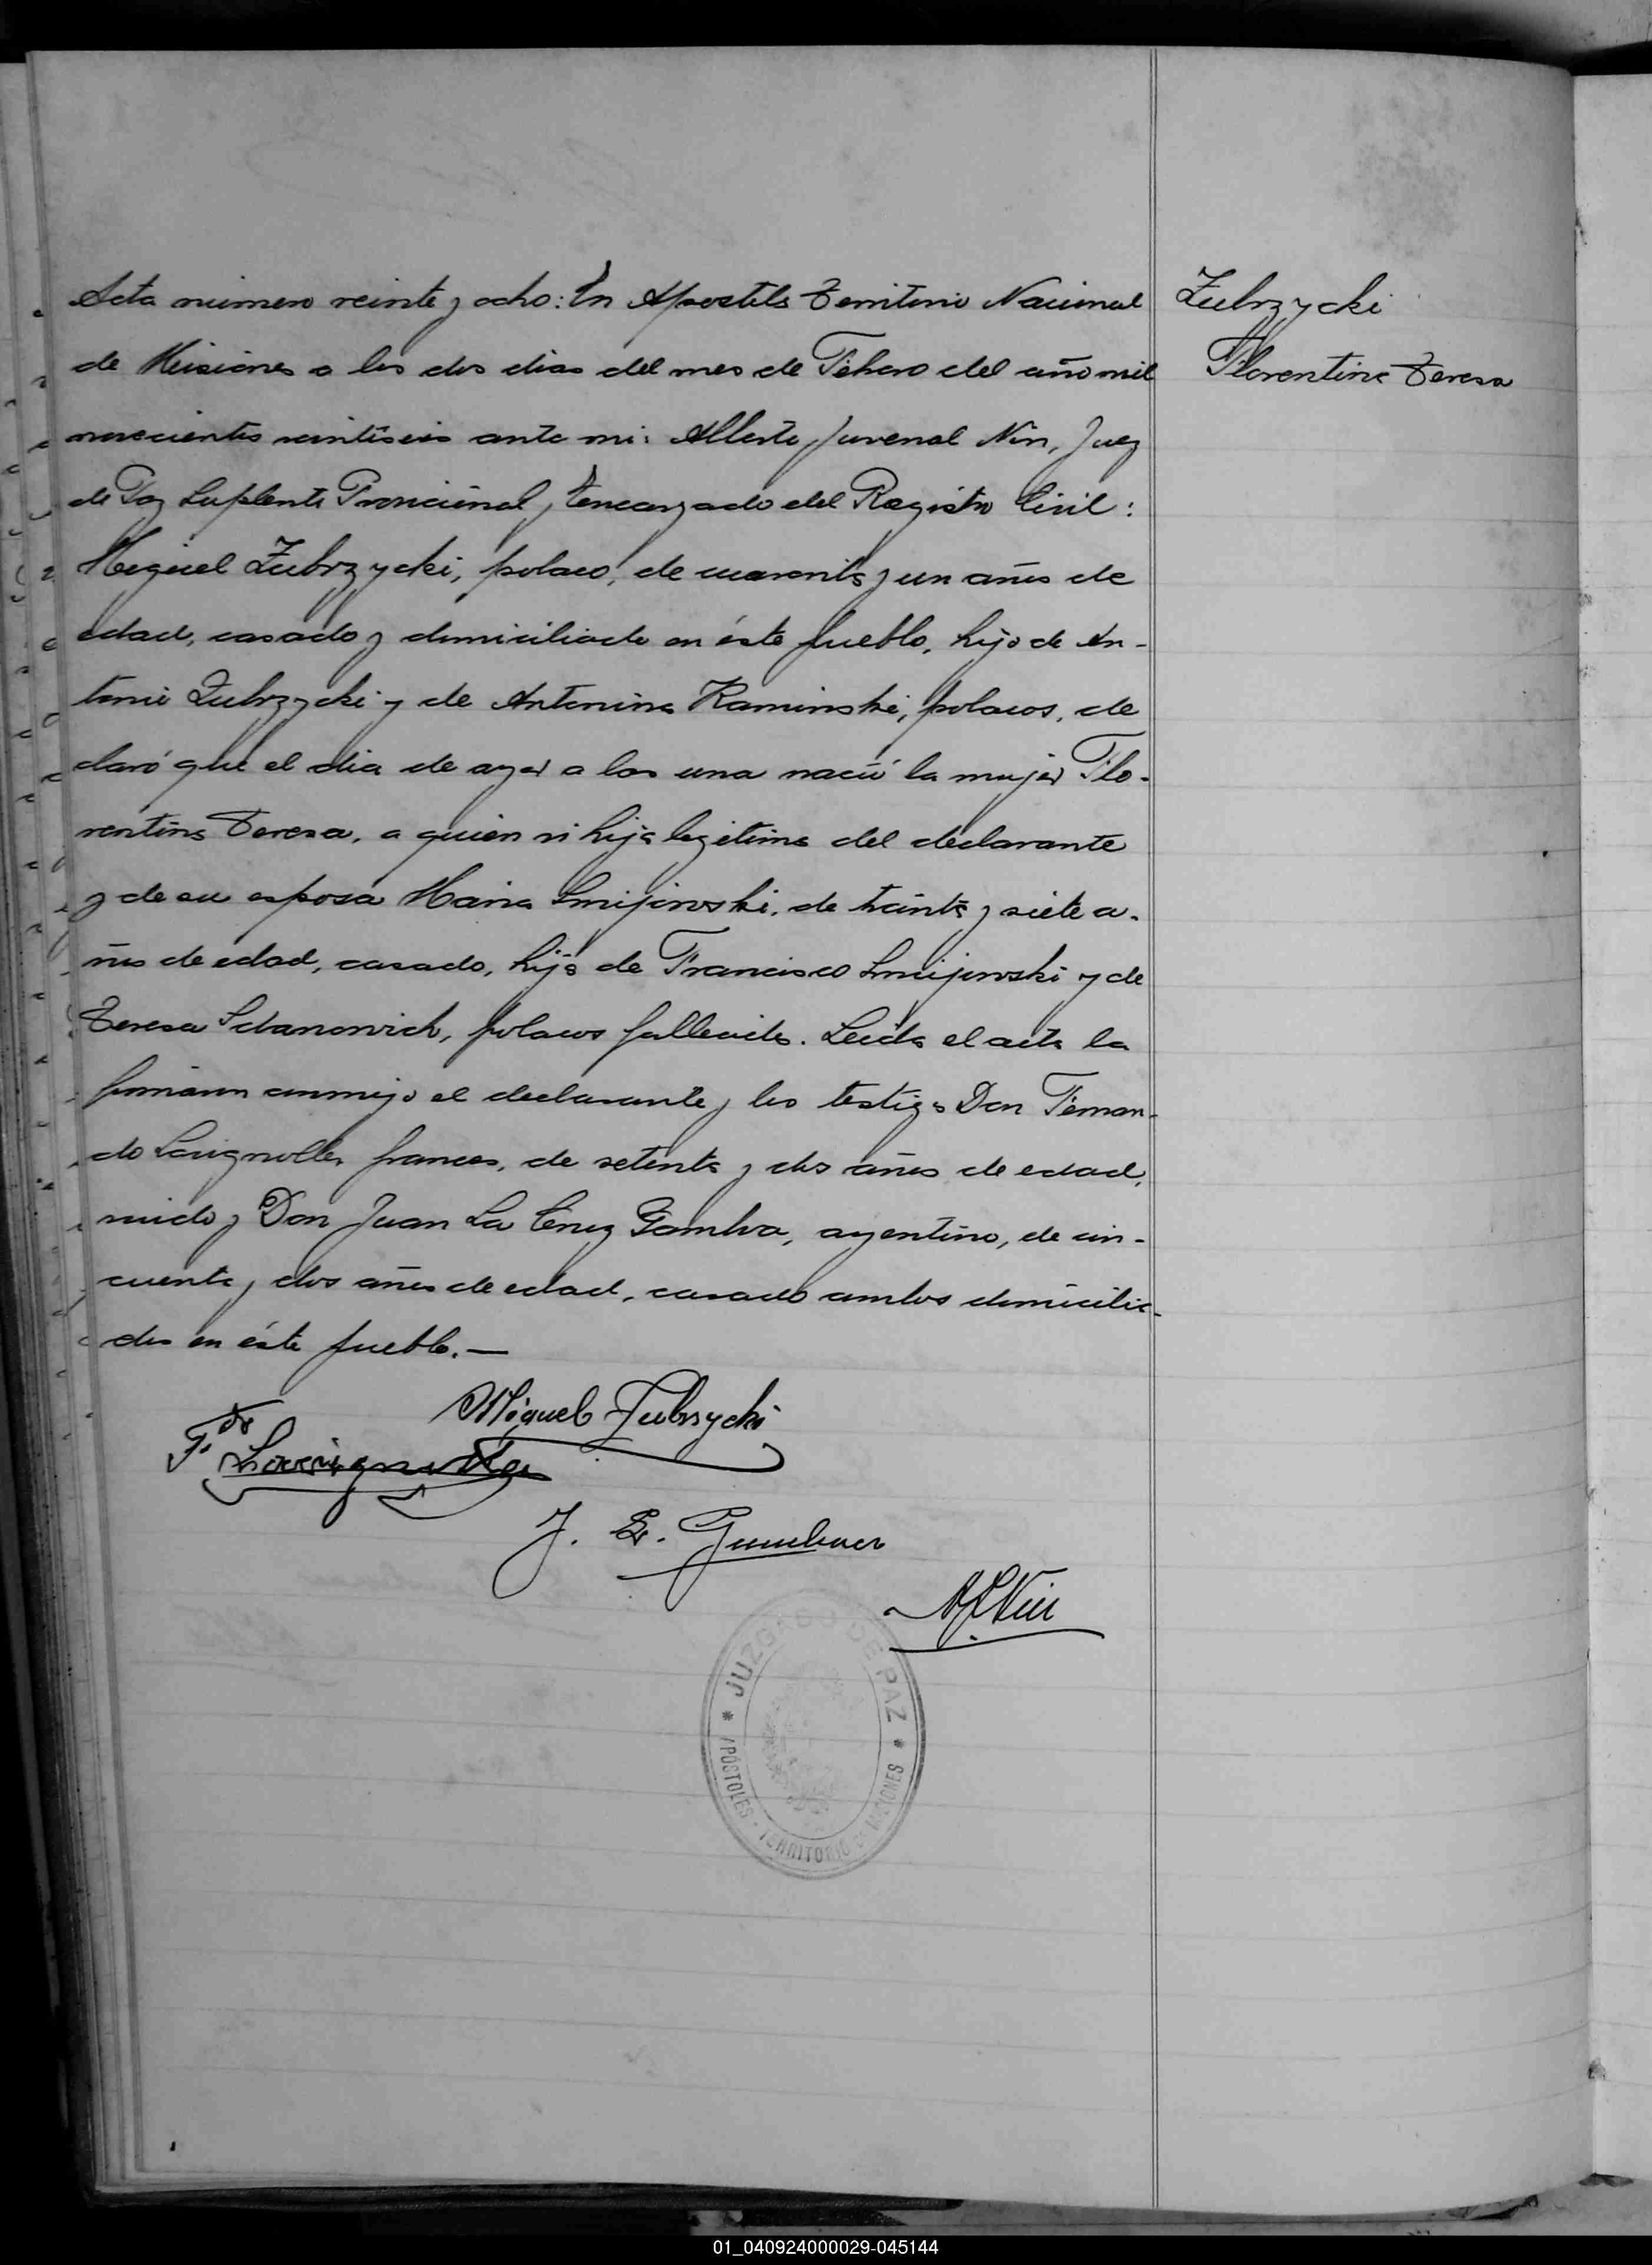 Acta número veinte y ocho: En Apostoles Territorio Nacional
de Misiones a los dos dias del mes de Febrero del año mil
novecientos veintiseis ante mi: Alberto Juvenal Nin, Juez
de Paz Suplente Provicional y Encargado del Registro Civil:
Miguel Zubrzycki, polaco, de cuarenta y un años de
edad, casado y domiciliado en éste pueblo, hijo de An-
tonio Zubrzycki y de Antonina Kaminski, polacos, de
claró que el dia de ayer a las una nació la mujer Flo-
rentina Teresa, a quien vi hija legitima del declarante
y de su esposa Maria Smijowski, de treinta y siete a-
ños de edad, casado, hija de Francisco Smijowski y de
Teresa Sdanowich, polacos fallecidos. Leida el acta la
firmaron conmigo el declarante y los testigos Don Fernan-
do Lavignolle, frances, de setenta y dos años de edad,
viudo y Don Juan La Cruz Gamboa, argentino, de cin-
cuenta y dos años de edad, casado ambos domicilia-
dos en éste pueblo.—
Zubrzycki
Florentina Teresa
Miguel Zubrzycki
F.do Lavignolle
J. L. Gamboa
A J Nin
JUZGADO DE PAZ
APÓSTOLES - TERRITORIO DE MISIONES
01_040924000029-045144